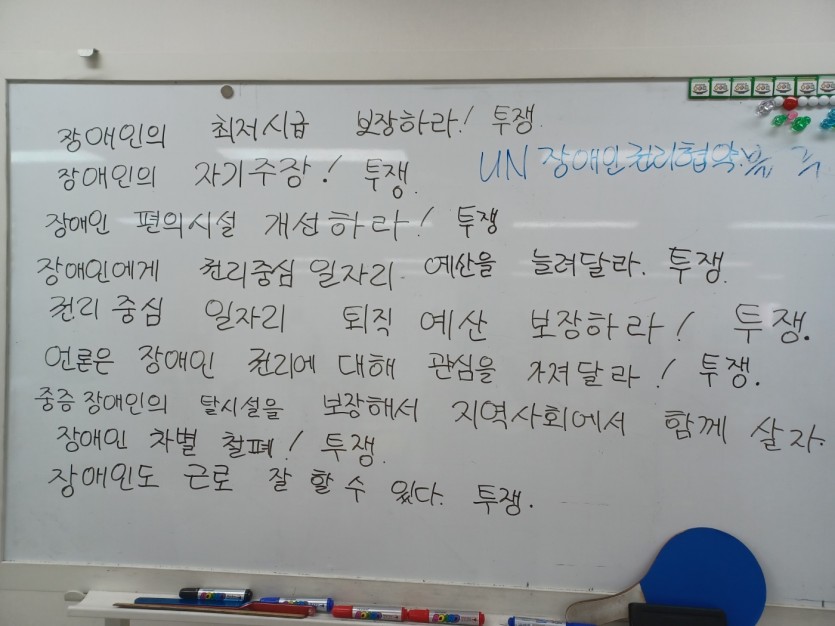 장애인의 최저시급 보장하라! 투쟁.
장애인의 자기주장! 투쟁.
UN 장애인권리협약
장애인 편의시설 개선하라! 투쟁
장애인에게 권리중심 일자리. 예산을 늘려달라. 투쟁.
권리 중심 일자리 퇴직 예산 보장하라! 투쟁.
언론은 장애인 권리에 대해 관심을 가져달라! 투쟁.
중증 장애인의 탈시설을 보장해서 지역사회에서 함께 살자.
장애인 차별 철폐! 투쟁.
장애인도 근로 잘 할 수 있다. 투쟁.